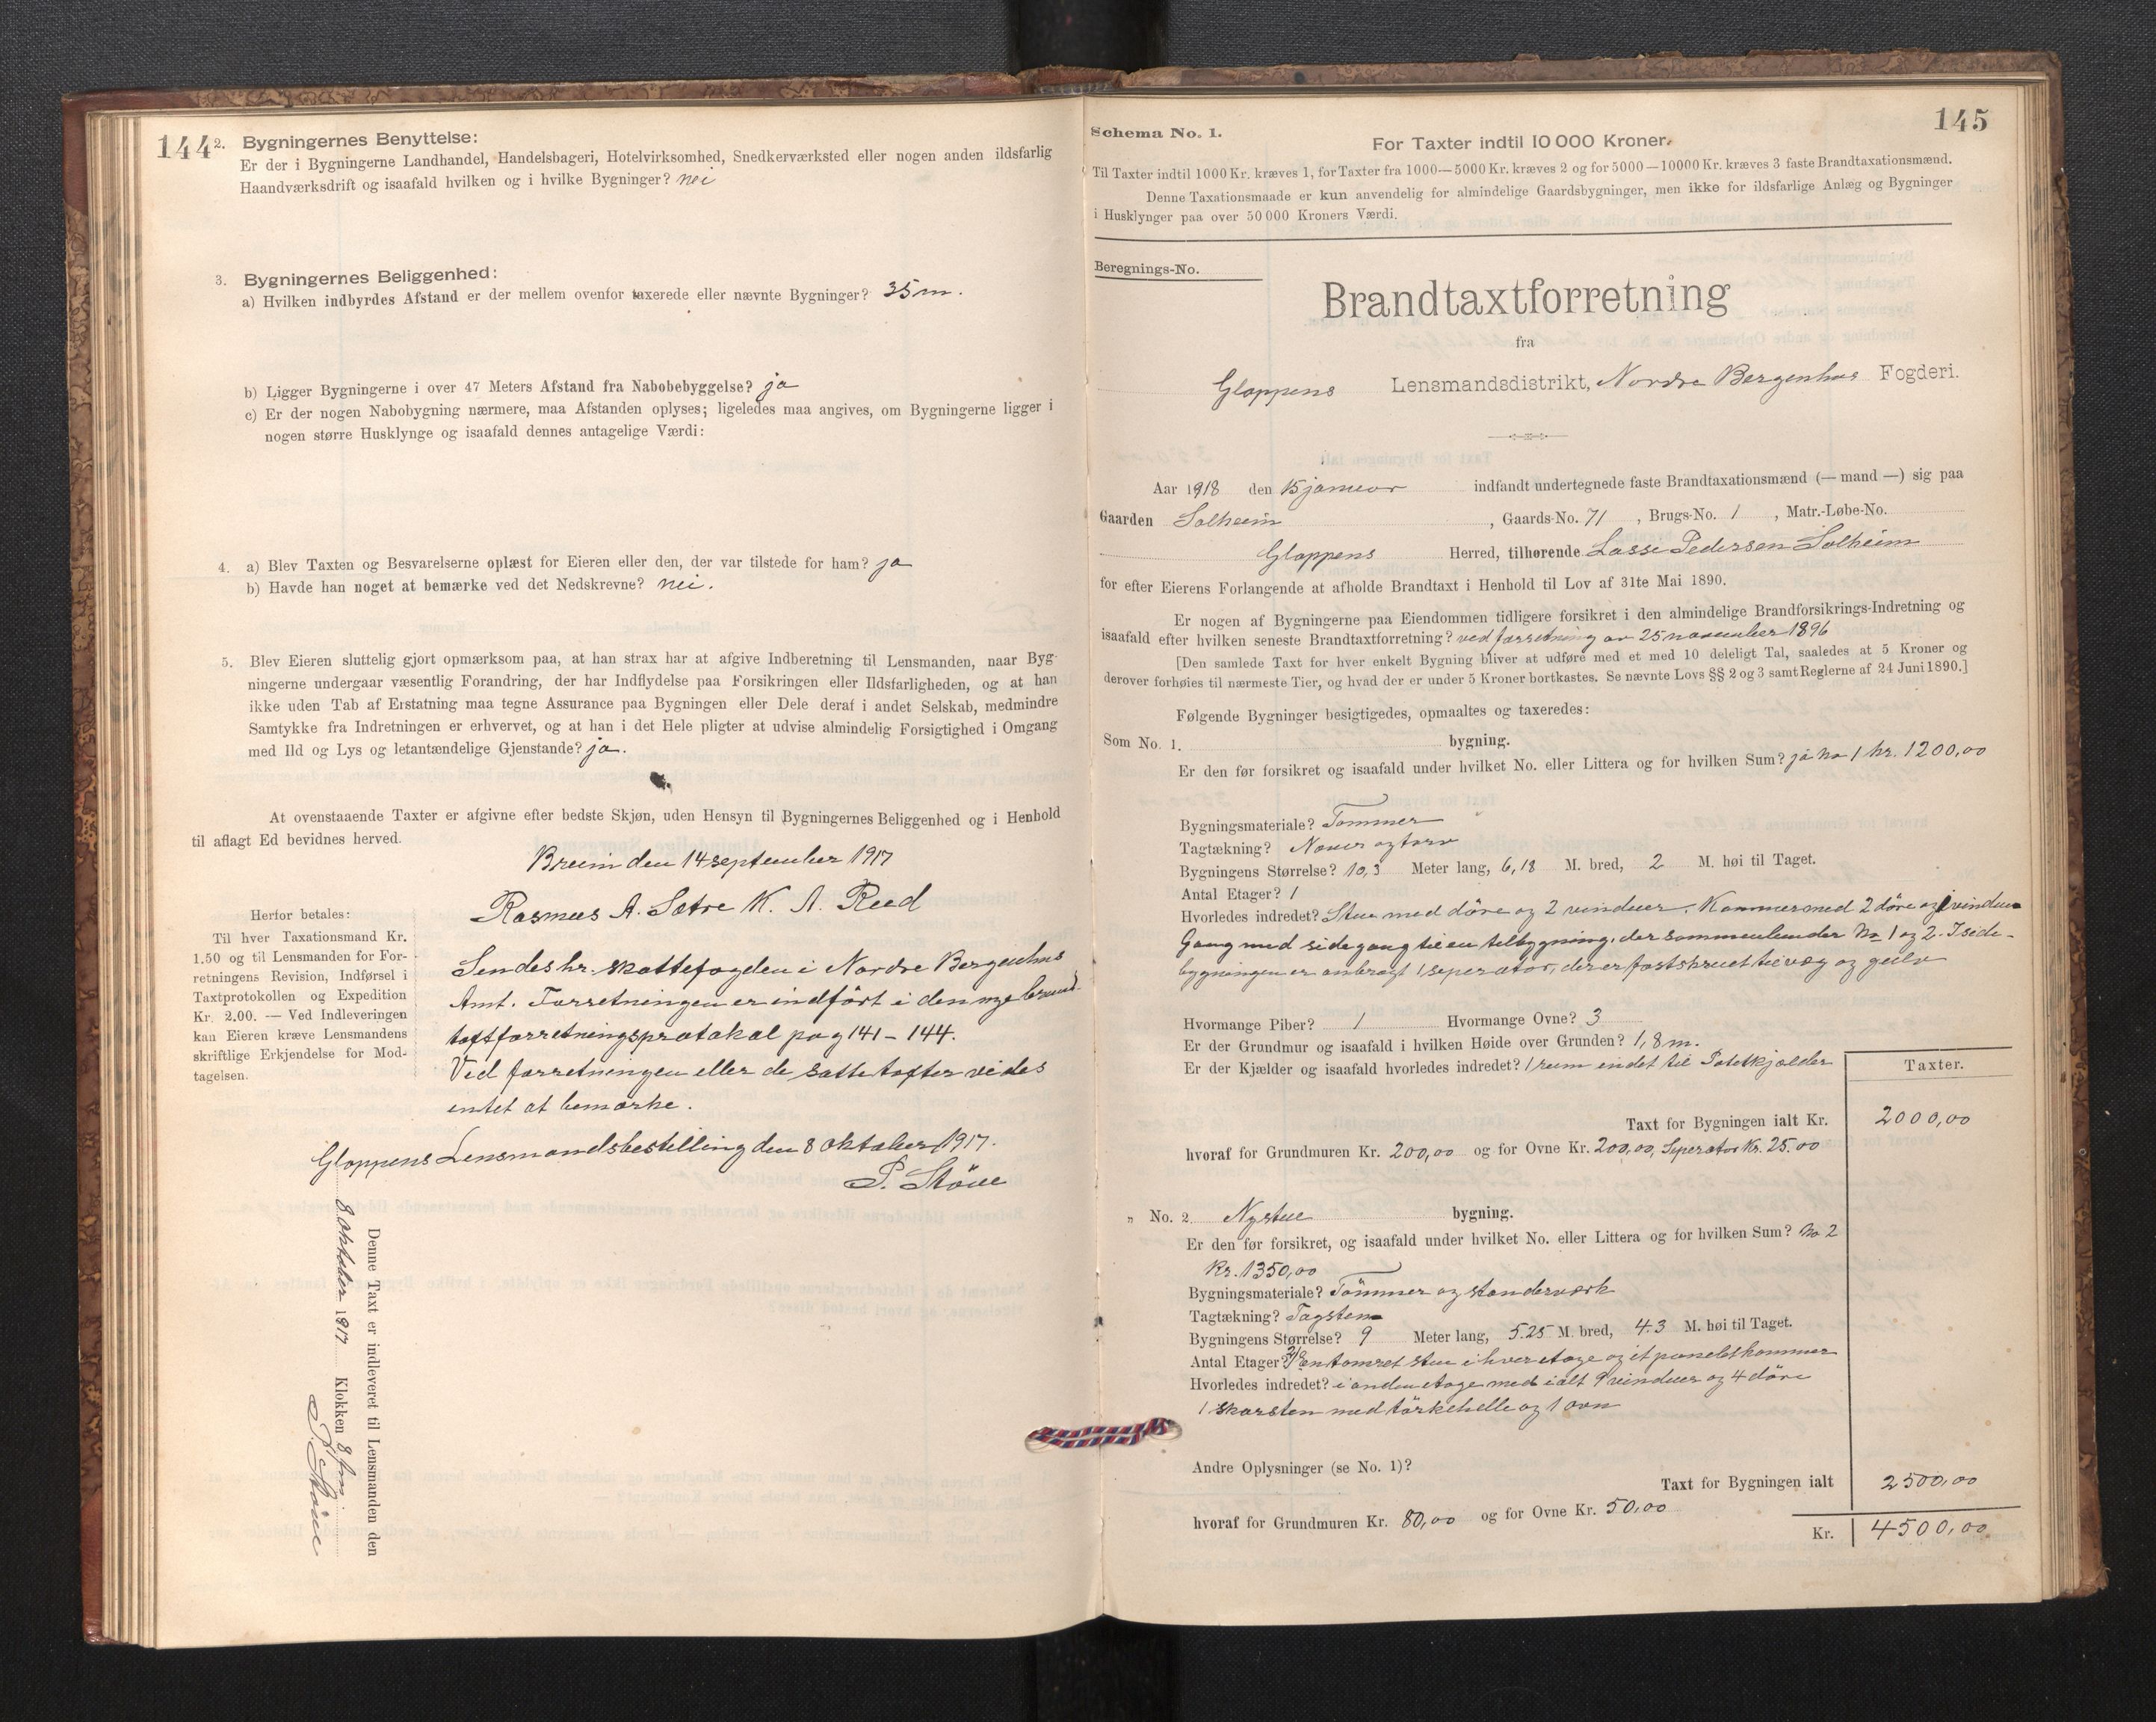 144
2. Bygningernes Benyttelse:
Er der i Bygningerne Landhandel, Handelsbageri, Hotelvirksomhed, Snedkerværksted eller nogen anden ildsfarlig
Haandværksdrift og isaafald hvilken og i hvilke Bygninger? nei
3. Bygningernes Beliggenhed:
a) Hvilken indbyrdes Afstand er der mellem ovenfor taxerede eller nævnte Bygninger? 35 m.
b) Ligger Bygningerne i over 47 Meters Afstand fra Nabobebyggelse? ja
c) Er der nogen Nabobygning nærmere, maa Afstanden oplyses; ligeledes maa angives, om Bygningerne ligger i
nogen større Husklynge og isaafald dennes antagelige Værdi:
4. a) Blev Taxten og Besvarelserne oplæst for Eieren eller den, der var tilstede for ham? ja
b) Havde han noget at bemærke ved det Nedskrevne? nei.
5. Blev Eieren sluttelig gjort opmærksom paa, at han strax har at afgive Indberetning til Lensmanden, naar Byg-
ningerne undergaar væsentlig Forandring, der har Indflydelse paa Forsikringen eller Ildsfarligheden, og at han
ikke uden Tab af Erstatning maa tegne Assurance paa Bygningen eller Dele deraf i andet Selskab, medmindre
Samtykke fra Indretningen er erhvervet, og at han i det Hele pligter at udvise almindelig Forsigtighed i Omgang
med Ild og Lys og letantændelige Gjenstande? ja.
At ovenstaaende Taxter er afgivne efter bedste Skjøn, uden Hensyn til Bygningernes Beliggenhed og i Henhold
til aflagt Ed bevidnes herved.
Breim den 14 september 1917
Rasmus A. Sætre K. A. Reed
Herfor betales:
Til hver Taxationsmand Kr.
1.50 og til Lensmanden for For-
retningens Revision, Indførsel i
Taxtprotokollen og Expedition
Kr. 2.00. — Ved Indleveringen
kan Eieren kræve Lensmandens
skriftlige Erkjendelse for Mod-
tagelsen.
Sendes hr. skattefogden i Nordre Bergenhus
Amt. Forretningen er indført i den nye brand-
taxtforretningsprotokol pag 141 - 144.
Ved forretningen eller de satte taxter vides
intet at bemærke.
Gloppens Lensmandsbestilling den 8 oktober 1917.
P. Støve
Denne Taxt er indleveret til Lensmanden den
8. Oktober 1917 Klokken 8 fm.
P. Støve
145
Schema No. 1.
For Taxter indtil 10 000 Kroner.
Til Taxter indtil 1000 Kr. kræves 1, for Taxter fra 1000—5000 Kr. kræves 2 og for 5000—10000 Kr. kræves 3 faste Brandtaxationsmænd.
Denne Taxationsmaade er kun anvendelig for almindelige Gaardsbygninger, men ikke for ildsfarlige Anlæg og Bygninger
i Husklynger paa over 50 000 Kroners Værdi.
Beregnings-No.
Brandtaxtforretning
fra
Gloppens Lensmandsdistrikt, Nordre Bergenhus Fogderi.
Aar 1918 den 15 januar indfandt undertegnede faste Brandtaxationsmænd (— mand —) sig paa
Gaarden Solheim , Gaards-No. 71 , Brugs-No. 1 , Matr.-Løbe-No.
Gloppens Herred, tilhørende Lasse Pedersen Solheim
for efter Eierens Forlangende at afholde Brandtaxt i Henhold til Lov af 31te Mai 1890.
Er nogen af Bygningerne paa Eiendommen tidligere forsikret i den almindelige Brandforsikrings-Indretning og
isaafald efter hvilken seneste Brandtaxtforretning? ved forretning av 25 november 1896
[Den samlede Taxt for hver enkelt Bygning bliver at udføre med et med 10 deleligt Tal, saaledes at 5 Kroner og
derover forhøies til nærmeste Tier, og hvad der er under 5 Kroner bortkastes. Se nævnte Lovs §§ 2 og 3 samt Reglerne af 24 Juni 1890.]
Følgende Bygninger besigtigedes, opmaaltes og taxeredes:
Som No. 1. bygning.
Er den før forsikret og isaafald under hvilket No. eller Littera og for hvilken Sum? ja No 1 kr. 1200,00
Bygningsmateriale? Tømmer
Tagtækning? Næver og torv
Bygningens Størrelse? 10,3 Meter lang, 6,18 M. bred, 2 M. høi til Taget.
Antal Etager? 1
Hvorledes indredet? Stue med døre og 2 vinduer. Kammers med 2 døre og 1 vindue
Gang med sidegang til en tilbygning, der sammenbinder No 1 og 2. I side-
bygningen er anbragt 1 seperator, der er fastskruet til væg og gulv
Hvormange Piber? 1 Hvormange Ovne? 3
Er der Grundmur og isaafald i hvilken Høide over Grunden? 1,8 m.
Er der Kjælder og isaafald hvorledes indredet? 1 rum indet til Potetkjælder
Taxter.
Taxt for Bygningen ialt Kr. 2000,00
hvoraf for Grundmuren Kr. 200,00 og for Ovne Kr. 200,00, Seperator Kr. 25.00
„ No. 2. Nystue bygning.
Er den før forsikret, og isaafald under hvilket No. eller Littera og for hvilken Sum? No 2
Kr. 1350,00
Bygningsmateriale? Tömmer og standerværk
Tagtækning? Tagsten
Bygningens Størrelse? 9 Meter lang, 5.25 M. bred, 4.3 M. høi til Taget.
Antal Etager? 2/ En tømret stue i hver etage og et panelet kammer
Hvorledes indredet? i anden etage med ialt 9 vinduer og 4 döre
1 skorsten med tørkehelle og 1 ovn
Andre Oplysninger (se No. 1)?
Taxt for Bygningen ialt 2500,00
hvoraf for Grundmuren Kr. 80,00 og for Ovne Kr. 50,00
Kr. 4500,00